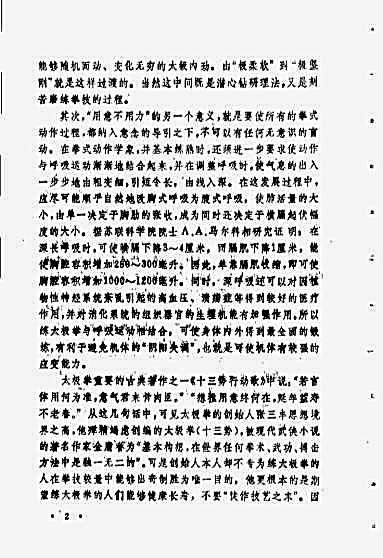 能够随机而动、变化无穷的太极内功。由“极柔软”到“极坚
刚”就是这样过渡的。当然这中间既是潜心钻研理法，又是刻
苦磨练拳技的过程。
其次，“用意不用力”的另一个意义，就是要使所有的拳式
动作过程，都纳入意念的导引之下，不可以有任何无意识的盲
动。在拳式动作学象，并基本练熟时，还须进一步要求使动作
与呼吸运动渐渐地结合起来，并在调整呼吸时，使气息的出入
一步步地由粗变细，引短令长，由浅入深。在这发展过程中，
应尽可能顺乎自然地使胸式呼吸为腹式呼吸，使肺活量的大
小，由单一决定于胸肋的张收，成为同时还决定于横膈起伏幅
度的大小。据苏联科学院院士Λ.Λ.马尔科相研究证明：在
深长呼吸时，可使横膈下降3～4厘米，而膈肌下降1厘米，能
使胸腔容积增加250～300毫升。因此，单靠膈肌收缩，即可使
胸腔容积增加1000～1200毫升。同时，深呼吸还可以对因植
物性神经系统紊乱引起的高血压、溃疡症等得到较好的医疗
作用，并对消化系统的组织器官的生理机能有加强作用。所以
练太极拳与呼吸运动相结合，可使身体内外得到最全面的锻
炼，有利于避免机体的“阴阳失调”，也就是可使机体有较强的
应变能力。
太极拳重要的古典著作之一《十三势行功歌》中说：“若言
体用何为准，意气君来骨肉臣。”“想推用意终何在，延年益寿
不老春。”从这几句话中，可见太极拳的创始人张三丰思想境
界之高，他殚精竭虑创编的太极拳（十三势），被现代武侠小说
的著名作家金庸誉为“基本构想，在世界任何拳术、武功、搏击
方法中是独一无二的”。可是创始人本人却不专为练太极拳的
人在拳技较量中能够出奇制胜为唯一目的，他更根本的是期
望练太极拳的人们能够健康长寿，不要“徒作技艺之末”。因
• 2 •